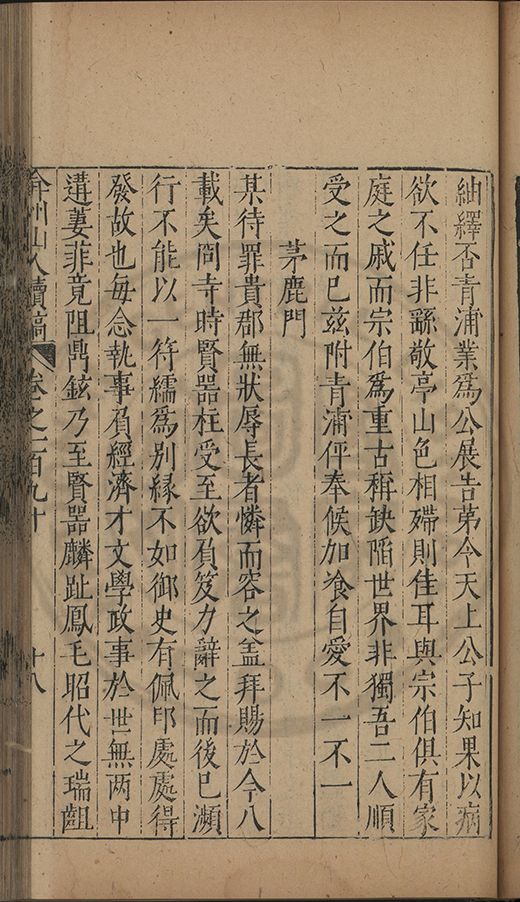 紬繹否青浦業為公展告第今天上公子知果以病
欲不任非繇敬亭山色相殢則佳耳與宗伯俱有家
庭之戚而宗伯為重古稱缺陷世界非獨吾二人順
受之而已茲附青浦伻奉候加飡自愛不一不一
茅鹿門
某待罪貴郡無狀辱長者憐而容之盖拜賜於今八
載矣問寺時賢器枉受至欲負笈力辭之而後已瀕
行不能以一符繻為別緣不如御史有佩印處處得
發故也每念執事負經濟才文學政事於世無两中
遘萋菲竟阻鼎鉉乃至賢器麟趾鳳毛昭代之瑞齟
弇州山人續稿 卷之一百九十 十八